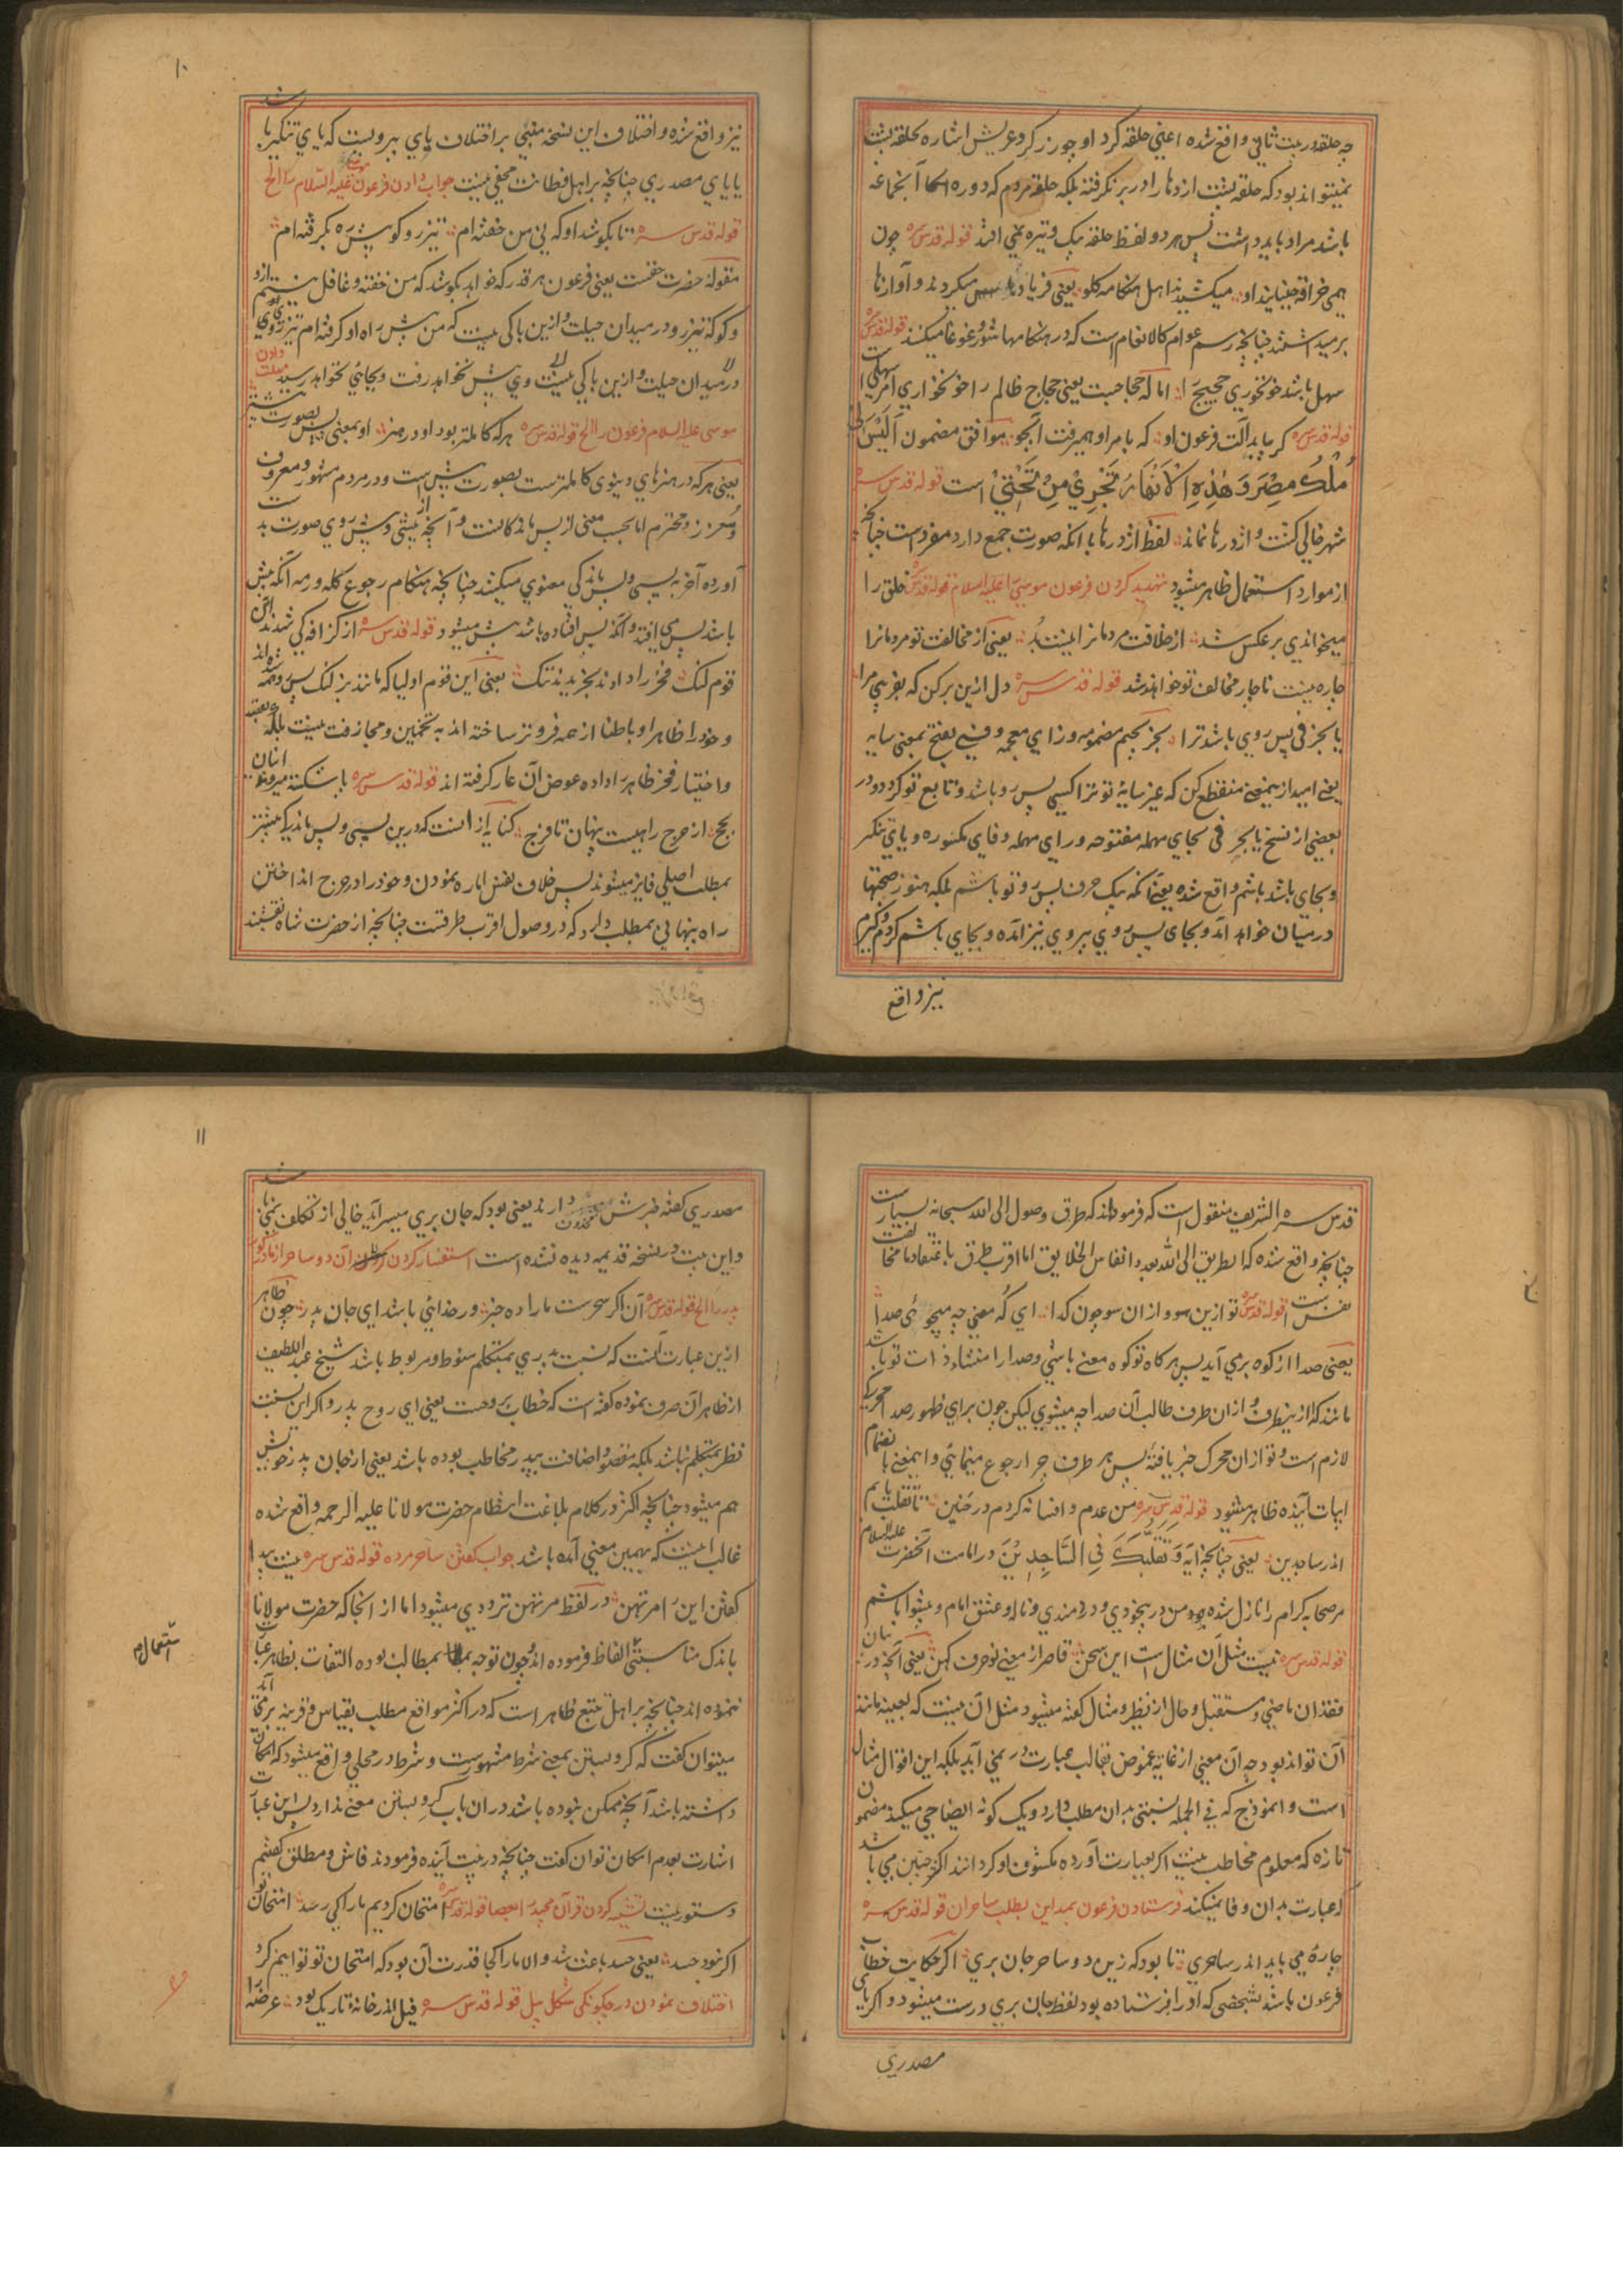 چه حلقه در بیت ثانی واقع شده اعنی حلقه کرد او چو رز کرد عریش اشاره بحلقه پشت
نمیتواند بود که حلقه پشت اژدها را در بر نگرفته بلکه حلقه مردم که دوره آنجماعه
باشد مراد باید داشت پس هر دو لفظ حلقه بیک وتیره نمی افتد قوله قدس سره چون
همی خراقه جنبانید او میکشیدند اهل هنکامه کلو یعنی فریاد میکردند و آوازها
برمیداشتند چنانچه رسم عوام کالانعام است که در هنکامها شور و غوغا میکنند قوله قدس سره
سهل باشد خونخوری حجیج را اما که حجاجیت یعنی حجاج ظالم را خونخواری امر سهلی است
قوله قدس سره کر بیابد آلت فرعون او که بامر او همیرفت آبجو موافق مضمون اَلَیْسَ لی
مُلْكُ مِصْرَ وَ هٰذِهِ الْاَنْهَارُ تَجْرِيْ مِنْ تَحْتِيْ است قوله قدس سره
شهر خالی کشت و اژدرها نماند لفظ اژدرها با آنکه صورت جمع دارد مفرد است چنانچه
از موارد استعمال ظاهر میشود تهدید کردن فرعون موسی را علیه السلام قوله قدس سره خلق را
میخواندی بر عکس شد از خلافت مردمانرا نیست بُد یعنی از مخالفت تو مردمانرا
چاره نیست ناچار مخالف تو خواهند شد قوله قدس سره دل ازین برکن که بفریبی مرا
یا بجز فی پس روی باشد ترا بجز بجیم مضمومه و زای معجمه و فی بفتح بمعنی سایه
یعنی امید از ینمعنی منقطع کن که غیر سایهٔ تو ترا کسی پس رو باشد و تابع تو کردد و در
بعضی از نسخ یا بجر فی بجای مهمله مفتوحه و رای مهمله و فای مکسوره و یای تنکیر
و بجای باشد باشم واقع شده یعنی آنکه بیک حرف پس رو تو باشم بلکه هنوز صحبتها
درمیان خواهد آمد و بجای پس روی پیروی نیز آمده و بجای باشم کردم و کیرم
نیز واقع
۱۰
نیز واقع شده و اختلاف این نسخه مبنی بر اختلاف یای پیرویست که یای تنکیر باشد
یا یای مصدری چنانچه بر اهل فطانت مخفی نیست جواب دادن فرعون موسی علیه السلام را الخ
قوله قدس سره تا بکوشد او که نی من خفته ام تیز رو کو پیش ره بکرفته ام
مقوله حضرت حقست یعنی فرعون هر قدر که خواهد بکوشد که من خفته و غافل نیستم ازو
و کو که تیز رو در میدان حیلت و ازین باکی نیست که من پیش راه او کرفته ام تیز روی
در میدان حیلت و ازین باکی نیست وی پیش نخواهد رفت و بجائی نخواهد رسید مهلت دادن
موسی علیه السلام فرعون را الخ قوله قدس سره هر که کاملتر بود او در هنر او بمعنی پس بصورت پیشتر
یعنی هر که در هنرهای دنیوی کاملترست بصورت پیش است و در مردم مشهور و معروف
و معزز و محترم اما بحسب معنی از پس ماندکانست و آنچه از پیشی و پیش روی صورت بد ست
آورده آخر به پسی و پس ماندکی معنوی میکشد چنانچه هنکام رجوع کله و رمه آنکه پیش
باشد پس می افتد و آنکه پس افتاده باشد پیش میشود قوله قدس سره از کزافه کی شدند این
قوم لنک فخر را دادند و بخریدند ننک یعنی این قوم اولیا که مانند بز لنک پس رو همه شده اند
و خود را ظاهرا و باطنا از همه فروتر ساخته اند به تخمین و مجازفت نیست بلکه بعقد
و اختیار فخر ظاهر را داده عوض آن عار کرفته اند قوله قدس سره پا شکسته میروند اینان
بحج از حرج راهیست پنهان تا فرج کنایه از آنست که درین پسی و پس ماندکی بیشتر
بمطلب اصلی فایز میشوند پس خلاف نفس اماره نمودن و خود را در حرج انداختن
راه پنهانی بمطلب دارد که در وصول اقرب طرقست چنانچه از حضرت شاه نقشبند
قدس سره الشریف منقول است که فرموده اند که طرق وصول الی الله سبحانه بسیار است
چنانچه واقع شده که الطریق الی الله بعدد انفاس الخلایق اما اقرب طرق باعتقاد ما مخالفت
نفس است قوله قدس سره تو ازین سو و ازان سو چون کدا ای که معنی چه میجوئی صدا
یعنی صدا از کوه برمی آید پس هر کاه تو کوه معنی باشی و صدا را منشا ذات تو باشد
مانند که ازینطرف و ازان طرف طالب آن صدا چه میشوی لیکن چون برای ظهور صدا محرکی
لازم است و تو ازان محرک خبر یافته پس هر طرف چرا رجوع مینمائی و اینمعنی بانضمام
ابیات آینده ظاهر میشود قوله قدس سره من عدم و افسانه کردم در حنین تا تقلب یابم
اندر ساجدین یعنی چنانچه آیه وَ تَقَلُّبَكَ فِي السَّاجِدِيْنَ در امامت آنحضرت علیه السلام
مر صحابه کرام را نازل شده من در بیخودی و دردمندی و ناله و عشق امام و پیشوا باشم
قوله قدس سره نیست مثل آن مثال است این سخن قاصر از معنی نو حرف کهن یعنی آنچه در بیان
فقدان ماضی و مستقبل و حال از نظیر و مثال کفته میشود مثل آن نیست که بعینه مانند
آن تواند بود چه آن معنی از غایة غموض بقالب عبارت در نمی آید بلکه این اقوال مثال
است و انموذج که فی الجمله نسبتی بدان مطلب دارد و یک کونه ایضاحی میکند مضمون
تازه که معلوم مخاطب نیست اکر بعبارت آورده مکشوف او کردانند اکثر چنین می باشد
که عبارت بدان وفا نمیکند فرستادن فرعون بمداین بطلب ساحران قوله قدس سره
چارهٔ می باید اندر ساحری تا بود که زین دو ساحر جان بری اکر حکایت خطاب
فرعون باشد بشخصی که او را فرستاده بود لفظ جان بری درست میشود و اکر یای
مصدری
۱۱
مصدری کفته خبرش محذوف دارند یعنی بود که جان بری میسر آید خالی از تکلف نمی باشد
و این بیت در نسخه قدیمه دیده نشده است استفسار کردن آن دو ساحر از مادر کور
پدر را الخ قوله قدس سره آن اکر سحرست ما را ده خبر ور خدائی باشد ای جان پدر چون ظاهر
ازین عبارت آنست که نسبت پدری بمتکلم منوط و مربوط باشد شیخ عبد اللطیف
از ظاهر آن صرف نموده کفته است که خطاب بروحست یعنی ای روح پدر و اکر این نسبت
نظر بمتکلم نباشد بلکه مقصود اضافت بپدر مخاطب بوده باشد یعنی از جان پدر خویش
هم میشود چنانچه اکثر در کلام بلاغت انتظام حضرت مولانا علیه الرحمه واقع شده
غالب اینست که بهمین معنی آمده باشد جواب کفتن ساحر مرده قوله قدس سره نیست پیدا
کفتن این را مرتهن در لفظ مرتهن ترددی میشود اما از آنجا که حضرت مولانا
باندک مناسبتی الفاظ فرموده اند و چون توجه بمطالب بوده التفات بظاهر عبارت
ننموده اند چنانچه بر اهل تتبع ظاهر است که در اکثر مواقع مطلب بقیاس و قرینه برمی آید
میتوان کفت که کرو بستن بمعنی شرط مشهورست و شرط در محلی واقع میشود که امکان
داشته باشد آنچه ممکن نبوده باشد دران باب کرو بستن معنی ندارد پس این عبارت
اشارت بعدم امکان توان کفت چنانچه در بیت آینده فرمودند فاش و مطلق کفتنم
دستور نیست تشبیه کردن قرآن مجید را بعصا قوله قدس سره امتحان کردیم ما را کی رسد امتحان تو
اکر نبود حسد یعنی حسد باعث شد و الا ما را کجا قدرت آن بود که امتحان تو توانیم کرد
اختلاف نمودن در چکونکی شکل پیل قوله قدس سره فیل اندر خانهٔ تاریک بود عرضه را
استعمال م